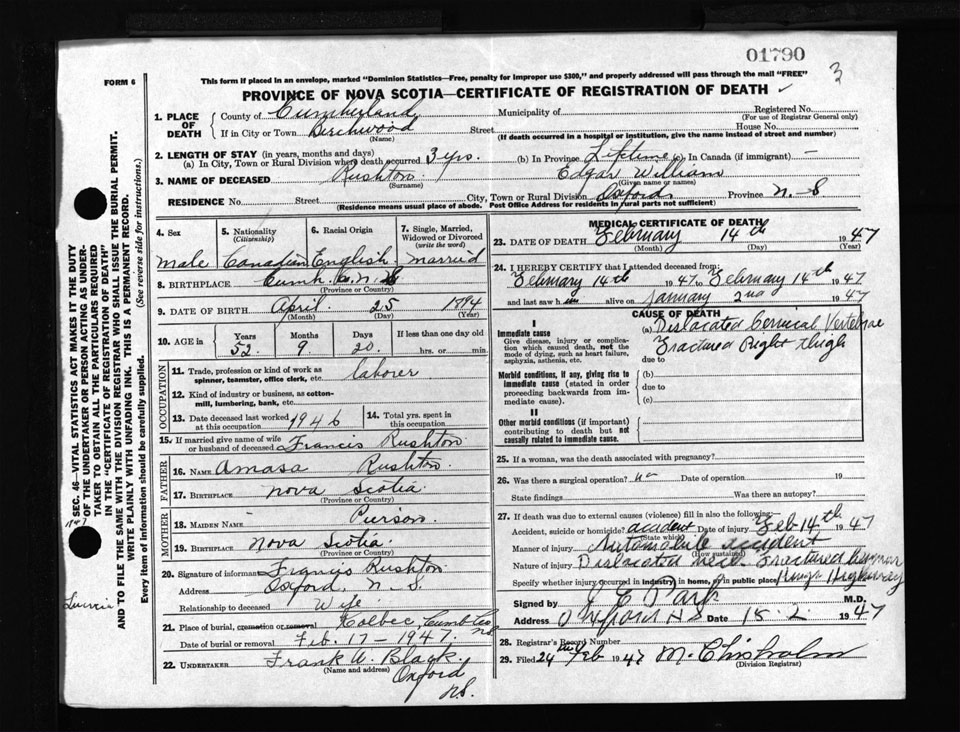 01790
3
FORM 6
This form if placed in an envelope, marked "Dominion Statistics—Free, penalty for improper use $300," and properly addressed will pass through the mail "FREE"
PROVINCE OF NOVA SCOTIA—CERTIFICATE OF REGISTRATION OF DEATH
SEC. 46—VITAL STATISTICS ACT MAKES IT THE DUTY
OF THE UNDERTAKER OR PERSON ACTING AS UNDER-
TAKER TO OBTAIN ALL THE PARTICULARS REQUIRED
IN THE "CERTIFICATE OF REGISTRATION OF DEATH"
AND TO FILE THE SAME WITH THE DIVISION REGISTRAR WHO SHALL ISSUE THE BURIAL PERMIT.
WRITE PLAINLY WITH UNFADING INK. THIS IS A PERMANENT RECORD.
Every item of information should be carefully supplied. (See reverse side for instructions.)
1. PLACE OF DEATH County of Cumberland Municipality of Registered No.
(For use of Registrar General only)
If in City or Town Birchwood Street House No.
(Name) (If death occurred in a hospital or institution, give the name instead of street and number)
2. LENGTH OF STAY (in years, months and days)
(a) In City, Town or Rural Division where death occurred 3 yrs. (b) In Province Lifetime (c) In Canada (if immigrant) —
3. NAME OF DECEASED Rushton Edgar William
(Surname) (Given name or names)
RESIDENCE No. Street City, Town or Rural Division Oxford Province N. S
(Residence means usual place of abode. Post Office Address for residents in rural parts not sufficient)
4. Sex 5. Nationality (Citizenship) 6. Racial Origin 7. Single, Married, Widowed or Divorced (write the word)
Male Canadian English Married
8. BIRTHPLACE Cumb. Co. N. S
(Province or Country)
9. DATE OF BIRTH April 25 1894
(Month) (Day) (Year)
10. AGE in Years Months Days If less than one day
52 9 20 hrs. or min.
OCCUPATION
11. Trade, profession or kind of work as spinner, teamster, office clerk, etc. laborer
12. Kind of industry or business, as cotton-mill, lumbering, bank, etc.
13. Date deceased last worked at this occupation 1946 14. Total yrs. spent in this occupation
15. If married give name of wife or husband of deceased Francis Rushton
FATHER
16. NAME Amasa Rushton
17. BIRTHPLACE Nova Scotia
(Province or Country)
MOTHER
18. MAIDEN NAME Purson
19. BIRTHPLACE Nova Scotia
(Province or Country)
20. Signature of informant Francis Rushton
Address Oxford, N. S.
Relationship to deceased Wife
21. Place of burial, cremation or removal Colbec, Cumb Co NS
Date of burial or removal Feb. 17 – 1947.
22. UNDERTAKER Frank W. Black.
(Name and address) Oxford
N.S.
MEDICAL CERTIFICATE OF DEATH
23. DATE OF DEATH February 14th 1947
(Month) (Day) (Year)
24. I HEREBY CERTIFY that I attended deceased from:
February 14th 1947 to February 14th 1947
and last saw him alive on January 2nd 1947
CAUSE OF DEATH
I
Immediate cause
Give disease, injury or complication which caused death, not the mode of dying, such as heart failure, asphyxia, asthenia, etc.
(a) Dislocated Cervical Vertebrae
Fractured Right thigh
due to
Morbid conditions, if any, giving rise to immediate cause (stated in order proceeding backwards from immediate cause).
(b)
due to
(c)
II
Other morbid conditions (if important) contributing to death but not causally related to immediate cause.
25. If a woman, was the death associated with pregnancy?
26. Was there a surgical operation? no Date of operation 19
State findings Was there an autopsy?
27. If death was due to external causes (violence) fill in also the following:—
Accident, suicide or homicide? accident Date of injury Feb 14th 1947
(State which)
Manner of injury Automobile accident
(How sustained)
Nature of injury Dislocated neck. Fractured
Specify whether injury occurred in industry, in home, or in public place Highway
Signed by M.D.
Address Oxford NS Date 15. 2. 1947
28. Registrar's Record Number
29. Filed 24 Feb 1947 M. Chisholm
(Division Registrar)